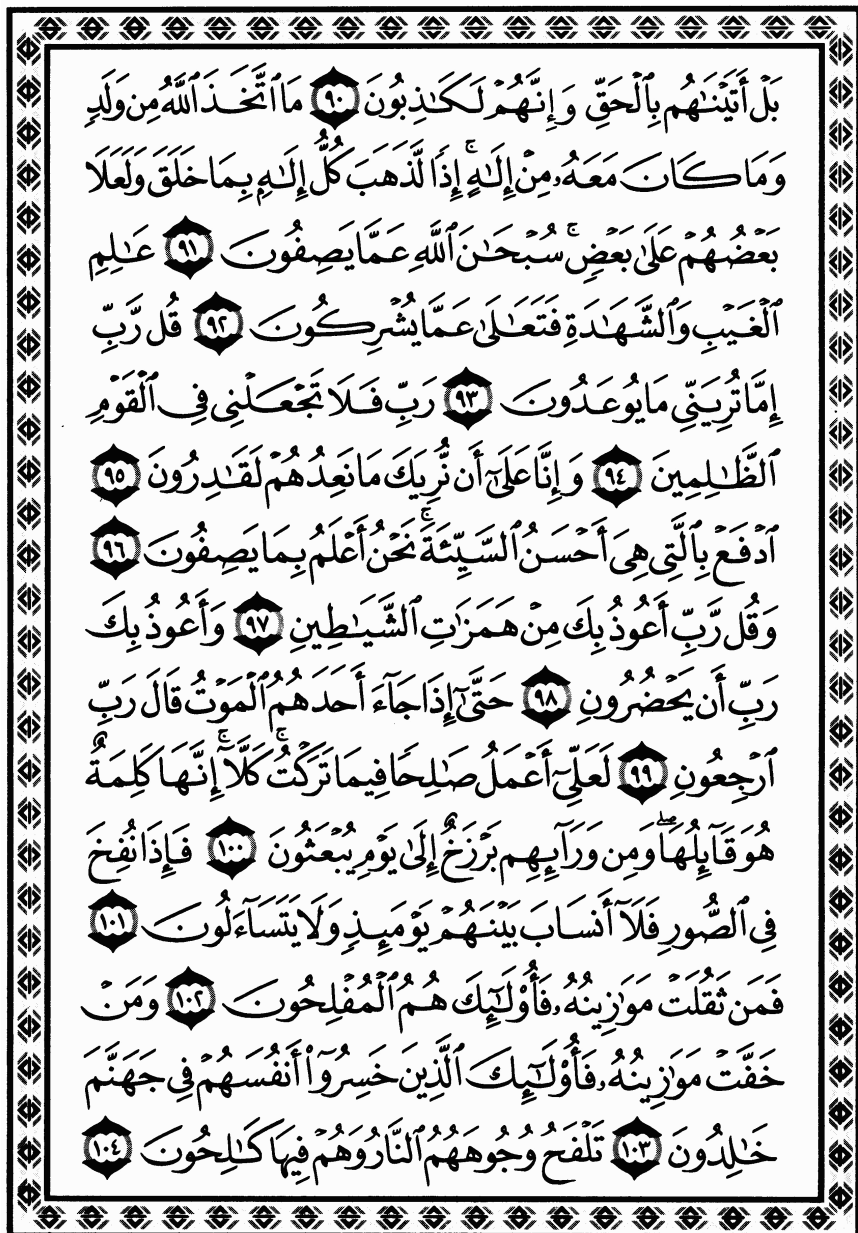 بَلْ أَتَيْنَٰهُم بِٱلْحَقِّ وَإِنَّهُمْ لَكَٰذِبُونَ ٩٠ مَا ٱتَّخَذَ ٱللَّهُ مِن وَلَدٍ
وَمَا كَانَ مَعَهُۥ مِنْ إِلَٰهٍ ۚ إِذًا لَّذَهَبَ كُلُّ إِلَٰهٍۭ بِمَا خَلَقَ وَلَعَلَا
بَعْضُهُمْ عَلَىٰ بَعْضٍ ۚ سُبْحَٰنَ ٱللَّهِ عَمَّا يَصِفُونَ ٩١ عَٰلِمِ
ٱلْغَيْبِ وَٱلشَّهَٰدَةِ فَتَعَٰلَىٰ عَمَّا يُشْرِكُونَ ٩٢ قُل رَّبِّ
إِمَّا تُرِيَنِّى مَا يُوعَدُونَ ٩٣ رَبِّ فَلَا تَجْعَلْنِى فِى ٱلْقَوْمِ
ٱلظَّٰلِمِينَ ٩٤ وَإِنَّا عَلَىٰٓ أَن نُّرِيَكَ مَا نَعِدُهُمْ لَقَٰدِرُونَ ٩٥
ٱدْفَعْ بِٱلَّتِى هِىَ أَحْسَنُ ٱلسَّيِّئَةَ ۚ نَحْنُ أَعْلَمُ بِمَا يَصِفُونَ ٩٦
وَقُل رَّبِّ أَعُوذُ بِكَ مِنْ هَمَزَٰتِ ٱلشَّيَٰطِينِ ٩٧ وَأَعُوذُ بِكَ
رَبِّ أَن يَحْضُرُونِ ٩٨ حَتَّىٰٓ إِذَا جَآءَ أَحَدَهُمُ ٱلْمَوْتُ قَالَ رَبِّ
ٱرْجِعُونِ ٩٩ لَعَلِّىٓ أَعْمَلُ صَٰلِحًا فِيمَا تَرَكْتُ ۚ كَلَّآ ۚ إِنَّهَا كَلِمَةٌ
هُوَ قَآئِلُهَا ۖ وَمِن وَرَآئِهِم بَرْزَخٌ إِلَىٰ يَوْمِ يُبْعَثُونَ ١٠٠ فَإِذَا نُفِخَ
فِى ٱلصُّورِ فَلَآ أَنسَابَ بَيْنَهُمْ يَوْمَئِذٍ وَلَا يَتَسَآءَلُونَ ١٠١
فَمَن ثَقُلَتْ مَوَٰزِينُهُۥ فَأُو۟لَٰٓئِكَ هُمُ ٱلْمُفْلِحُونَ ١٠٢ وَمَنْ
خَفَّتْ مَوَٰزِينُهُۥ فَأُو۟لَٰٓئِكَ ٱلَّذِينَ خَسِرُوٓا۟ أَنفُسَهُمْ فِى جَهَنَّمَ
خَٰلِدُونَ ١٠٣ تَلْفَحُ وُجُوهَهُمُ ٱلنَّارُ وَهُمْ فِيهَا كَٰلِحُونَ ١٠٤